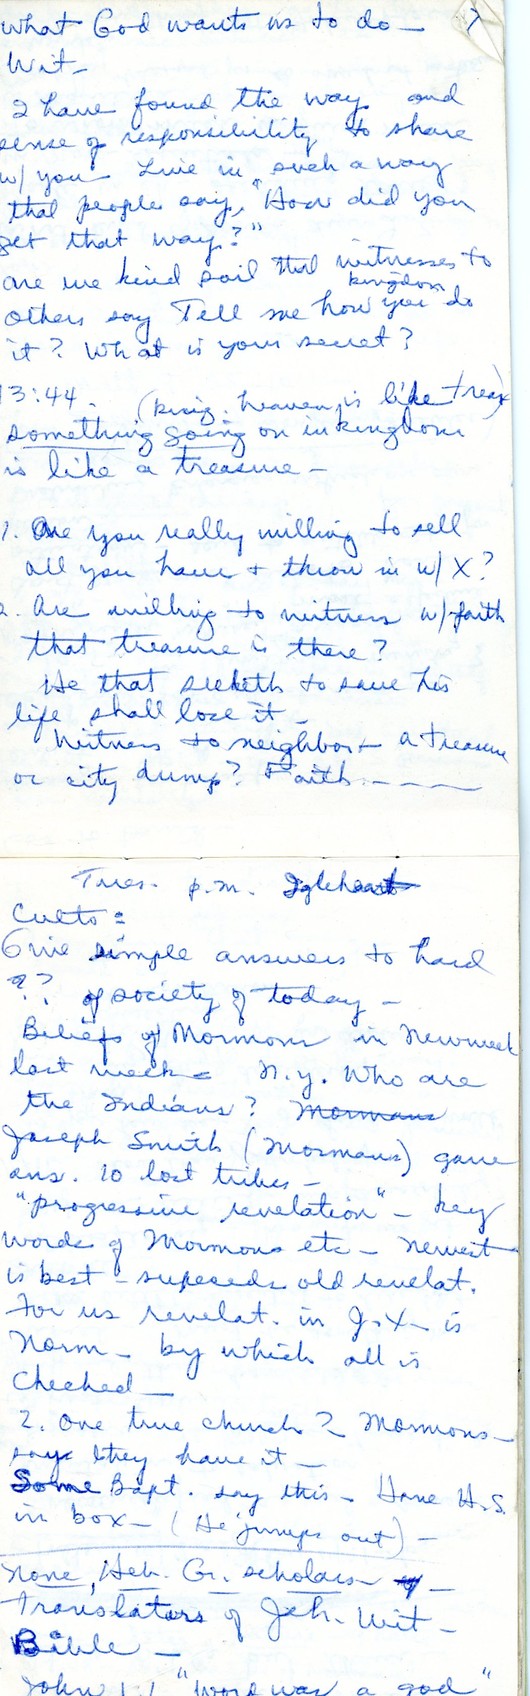 What God wants us to do — 7
Wit —
I have found the way and
sense of responsibility to share
w/ you. Live in such a way
that people say, "How did you
get that way?"
are we kind soil that witnesses to
kingdom
others say Tell me how you do
it? What is your secret?
13:44. (king. heaven is like treas)
something going on in kingdom
is like a treasure —
1. Are you really willing to sell
all you have + throw in w/ X?
2. Are willing to witness w/ faith
that treasure is there?
He that seeketh to save his
life shall lose it —
Witness to neighbor — a treasure
or city dump? Faith — — — —
Tues. p.m. Igleheart
Cults:
Give simple answers to hard
?? of society of today —
Beliefs of Mormons in Newsweek
last week — N.Y. Who are
the Indians? Mormans
Joseph Smith (Mormans) gave
ans. 10 lost tribes —
"progressive revelation" — key
words of Mormons etc — newest
is best — supeseds old revelat.
For us revelat. in J.X. is
Norm — by which all is
checked —
2. One true church? Mormons —
says they have it —
Some Bapt. say this — Have H.S.
in box — (He jumps out) —
None, Heb. Gr. scholars —
Translators of Jeh. Wit —
Bible —
John 1:1 "Word was a god"